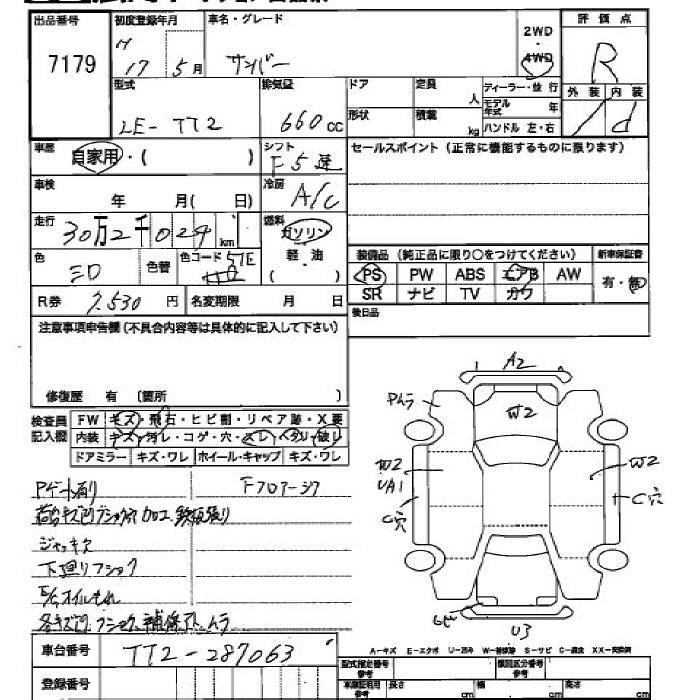 出品番号 初度登録年月 車名・グレード 2WD ・ 4WD 評価点
7179 H 17 5月 サンバー R
型式 排気量 ドア 定員 人 ディーラー・並行 外装 内装
LE-TT2 660cc 形状 積載 kg モデル年式 年 ハンドル 左・右 / d
車歴 自家用・( ) シフト F5速 セールスポイント (正常に機能するものに限ります)
車検 年 月( 日) 冷房 A/C
走行 30万2千024km 燃料 ガソリン 軽・油 ( )
色 シロ 色替 色コード 51E 装備品 (純正品に限り○をつけてください) 新車保証書
PS PW ABS エアB AW 有・無
R券 7,530円 名変期限 月 日 SR ナビ TV カワ
注意事項申告欄 (不具合内容等は具体的に記入して下さい) 後日品
修復歴 有 (箇所 )
検査員記入欄 FW キズ・飛石・ヒビ割・リペア跡・X要
内装 キズ・汚レ・コゲ・穴・スレ・ヘタリ・破レ
ドアミラー キズ・ワレ ホイール・キャップ キズ・ワレ
A2
Pムラ
W2
W2
UA1
W2
C穴
C穴
U3
Fフロアーシワ
ジャッキ欠
下廻りフショク
車台番号 TT2-287063
A-キズ E-エクボ U-凹み W-補修跡 S-サビ C-腐蝕 XX-交換済
登録番号 型式指定番号 類別区分番号
車庫証明用参考 長さ cm 幅 cm 高さ cm